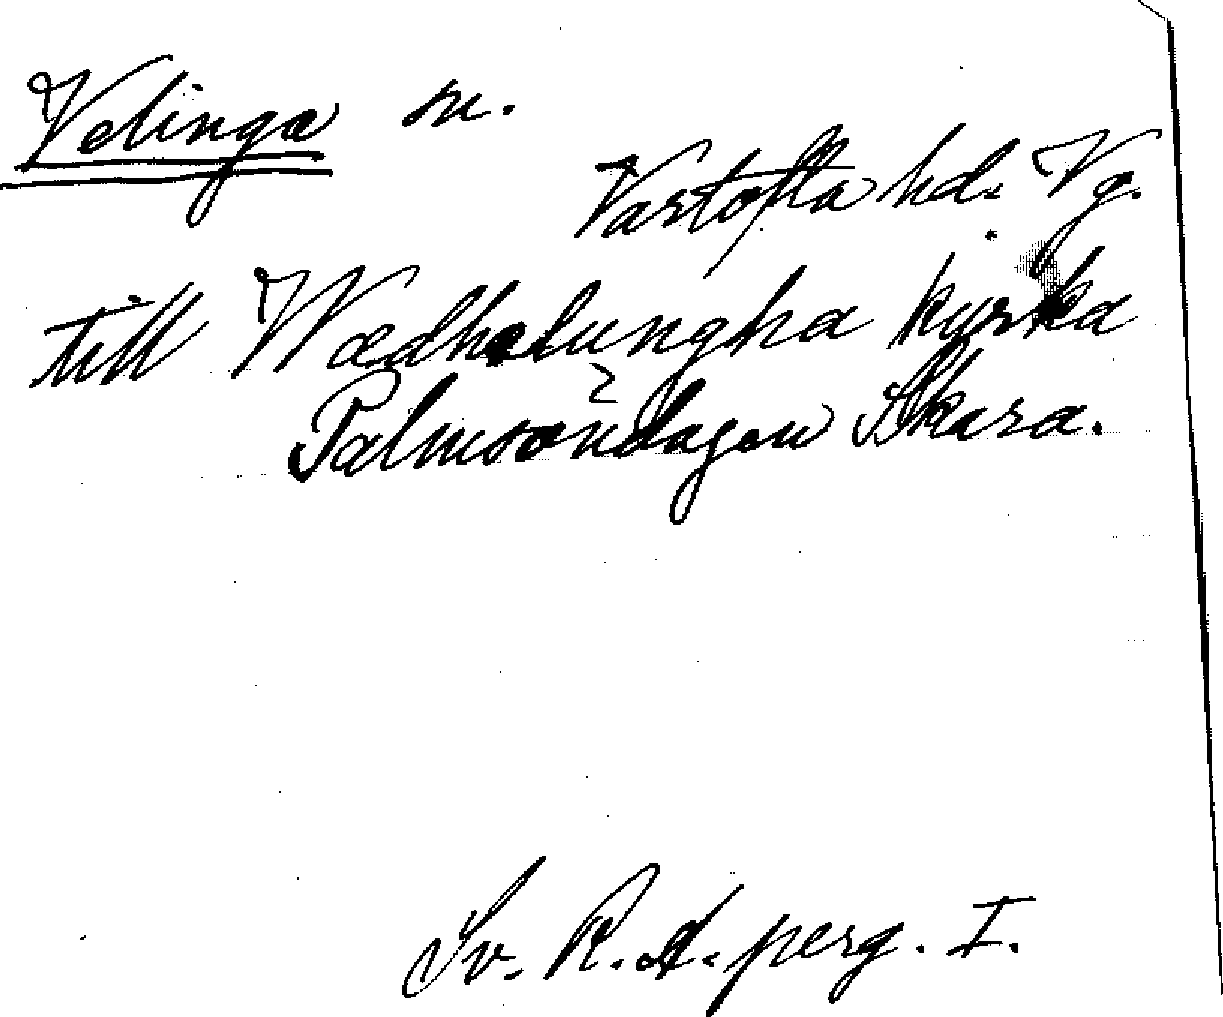 Velinga sn.
Vartofta hd. Vg.
till Wædhelungha kyrka
Palmsöndagen Skara.
Sv. R. A. perg. I.